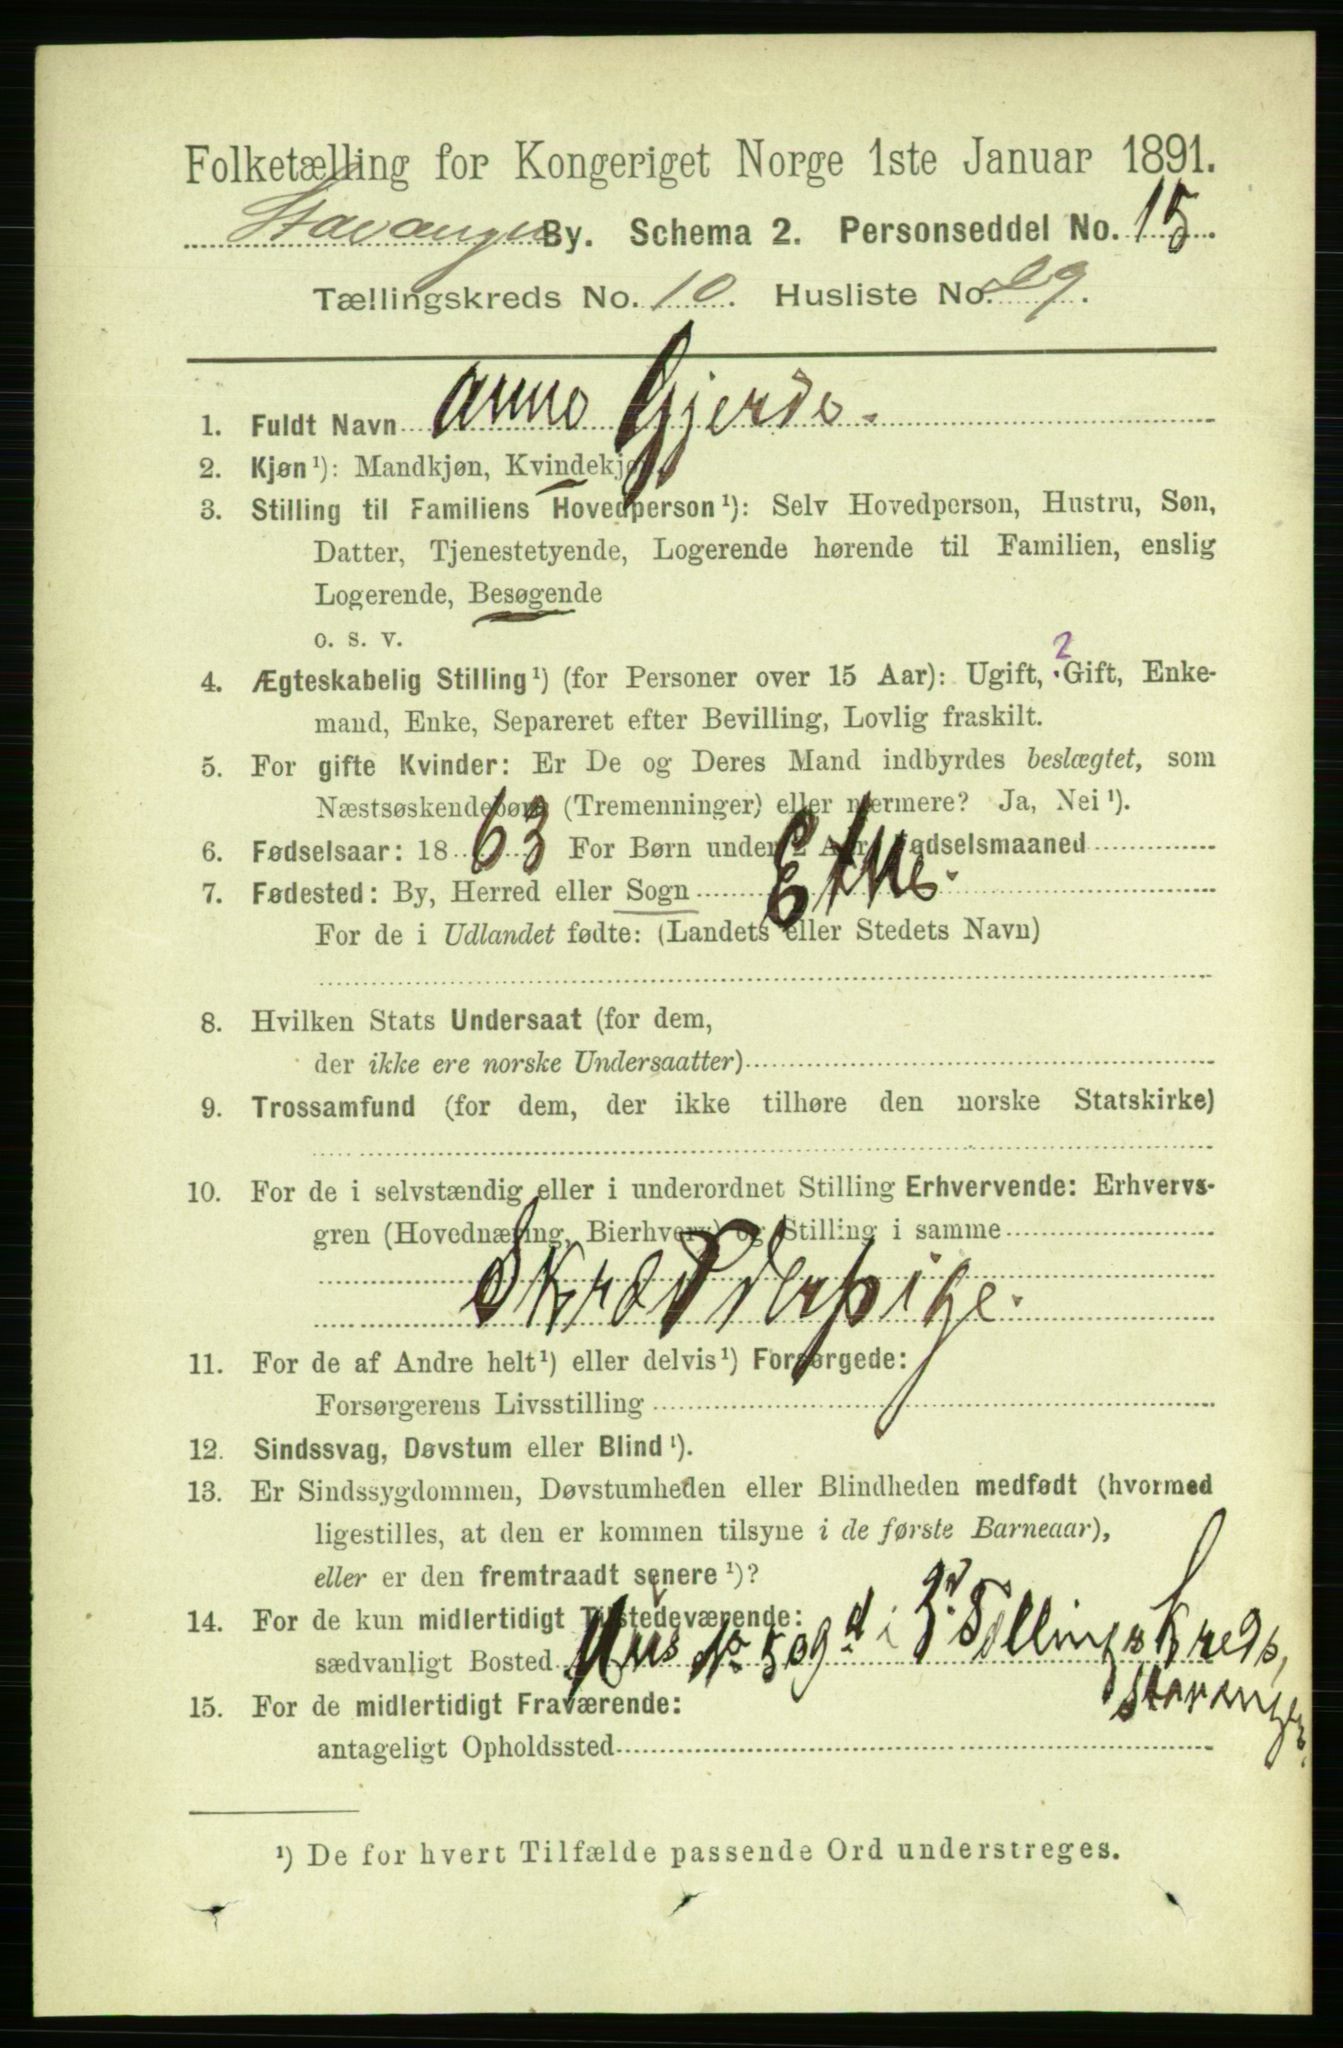 Folketælling for Kongeriget Norge 1ste Januar 1891.
Stavanger By. Schema 2. Personseddel No. 15.
Tællingskreds No. 10. Husliste No. 29.
1. Fuldt Navn Anna Gjerde.
2. Kjøn ¹): Mandkjøn, Kvindekjøn.
3. Stilling til Familiens Hovedperson ¹): Selv Hovedperson, Hustru, Søn,
Datter, Tjenestetyende, Logerende hørende til Familien, enslig
Logerende, Besøgende
o. s. v.
2
4. Ægteskabelig Stilling ¹) (for Personer over 15 Aar): Ugift, Gift, Enke-
mand, Enke, Separeret efter Bevilling, Lovlig fraskilt.
5. For gifte Kvinder: Er De og Deres Mand indbyrdes beslægtet, som
Næstsøskendebørn (Tremenninger) eller nærmere? Ja, Nei ¹).
6. Fødselsaar: 1863 For Børn under 2 Aar: Fødselsmaaned
7. Fødested: By, Herred eller Sogn Etne.
For de i Udlandet fødte: (Landets eller Stedets Navn)
8. Hvilken Stats Undersaat (for dem,
der ikke ere norske Undersaatter)
9. Trossamfund (for dem, der ikke tilhøre den norske Statskirke)
10. For de i selvstændig eller i underordnet Stilling Erhvervende: Erhvervs-
gren (Hovednæring, Bierhverv) og Stilling i samme
Skrædderpige.
11. For de af Andre helt ¹) eller delvis ¹) Forsørgede:
Forsørgerens Livsstilling
12. Sindssvag, Døvstum eller Blind ¹).
13. Er Sindssygdommen, Døvstumheden eller Blindheden medfødt (hvormed
ligestilles, at den er kommen tilsyne i de første Barneaar),
eller er den fremtraadt senere ¹)?
14. For de kun midlertidigt Tilstedeværende:
sædvanligt Bosted Hus No 509 d i 3d Tellingskreds,
Stavanger.
15. For de midlertidigt Fraværende:
antageligt Opholdssted
¹) De for hvert Tilfælde passende Ord understreges.